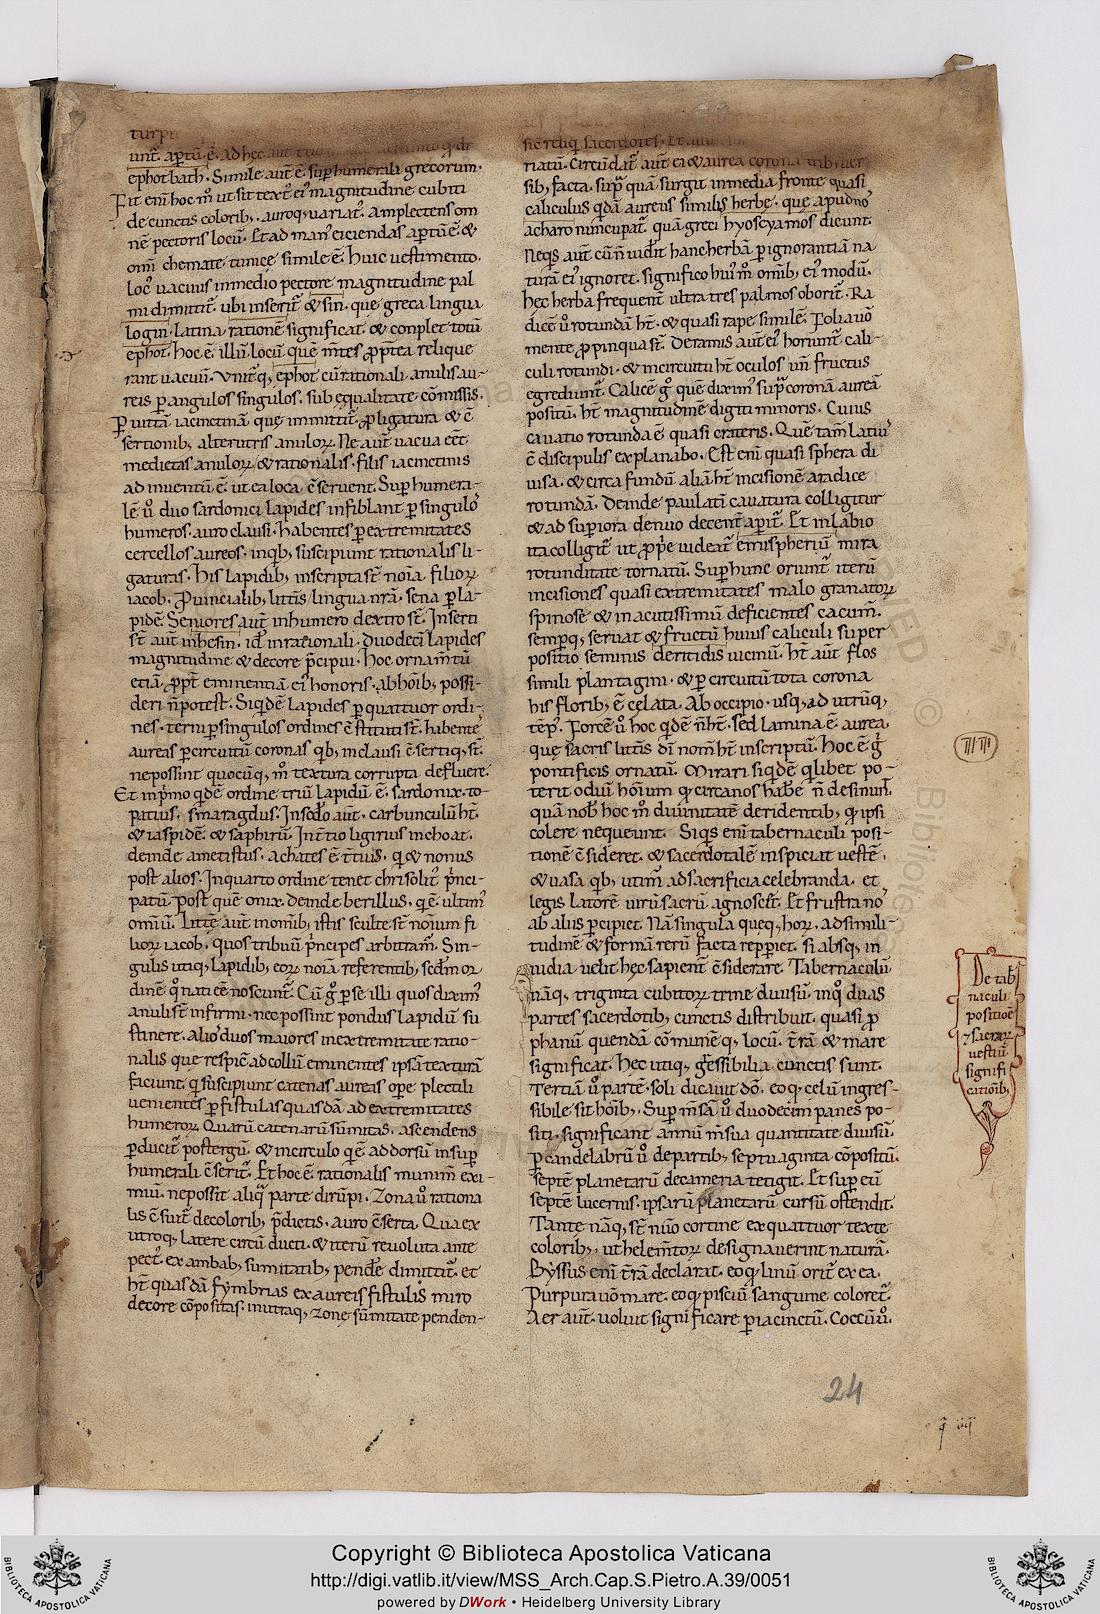 turpi
unt̃. aptũ ẽ. ad hęc aut
ephot bath. Simile aut̃ ẽ. suphumerali grecorum.
Fit eni hoc m̊ ut sit text̾ ei̾ magnitudine cubiti
de cunctis colorib; auroq; uariat̾. Amplectens om
nẽ pectoris locũ. Et ad man̾ eiciendas aptũ ẽ. &
omi chemate tunicę simile ẽ. Huic uestimento.
loc̾ uacuus in medio pectore magnitudine pal
mi dimittit̾. ubi inserit̾ & sin. que greca lingua
login. latina rationẽ significat. & conplet totũ
ephot. hoc ẽ. illũ locũ quẽ ņtes ꝓpt̃ea relique
rant uacuũ. Vnit̾q; ephot cũ rationali anulis au-
reis p angulos singulos. sub ęqualitate cõmissis.
P uittã iacinctinã quę inmittit̾ ꝓ ligatura & cẽ
sertionib; alterutris anuloꝝ. Ne aut̃ uacua eẽt
medietas anuloꝝ & rationalis. filis iacinctinis
ad inuentũ ẽ. ut ea loca c̃seruent. Sup humera-
lẽ ů duo sardonici lapides infiblant̾ p singulo
humeros. auro clausi. habentes p extremitates
cercellos aureos. in qb; suscipiunt rationalis li-
gaturas. His lapidib; inscripta st̃ noĩa. filioꝝ
iacob. Ꝓuincialib; litt̃is lingua nr̃a. sena p la-
pidẽ. Seniores aut̃ in humero dextro st̃. Inserti
st̃ aut̃ in hesin. id ẽ in rationali. duodeci lapides
magnitudine & decore p̃cipui. Hoc ornam̃tũ
etiã. ꝓpt̃ eminentiã ei̾ honoris. ab hoĩb; possi-
deri ñ potest. Siqdẽ lapides p quattuor ordi-
nes. terni p singulos ordines c̃stituti st̃. habente
aureas p circuitũ coronas qb; inclausi c̃sertiq; st̃.
ne possint quocũq; m̊ textura corrupta defluere.
Et in p̃mo qdẽ ordine triũ lapidũ ẽ. sardonix. to-
patius. smaragdus. In secdo aut̃. carbunculũ ht̃.
& iaspidẽ. & saphirũ. In t̃tio ligirius inchoat.
deinde ametistus. achates ẽ t̃tius. qi & nonus
post alios. In quarto ordine tenet chrisolit̾ p̃nci-
patũ. post quẽ onix. deinde berillus. q ẽ ultim̾
omiũ. Litt̃e aut̃ in omib; istis sculte st̃ nõium fi
lioꝝ iacob. quos tribuũ p̃ncipes arbitram̾. Sin-
gulis utiq; lapidib; eoꝝ noĩa referentib; scdm or
dinẽ q̊ nati cẽ noscunt̾. Cũ g̊ p se illi quos dixim̾
anuli st̃ infirmi. nec possint pondus lapidũ su
stinere. Alio̾ duos maiores in extremitate ratio-
nalis que respic̃ ad collũ eminentes ipsã texturã
faciunt. qi suscipiunt catenas aureas ope plectili
uenientes p fistulas quasdã ad extremitates
humeroꝝ. Quarũ catenarũ sũmitas. ascendens
p ducit̾ postergũ. & in circulo q ẽ. ad dorsũ insup
humerali c̃serit̾. Et hoc ẽ. rationalis munim̃ exi-
miũ. ne possit aliq̃ parte dirũpi. Zona ů rationa
lis c̃suit̾ de colorib; p̃dictis. auro c̃serta. Qua ex
utroq; latere circũ ducti. & iterũ reuoluta ante
pect̾. ex ambab; sumitatib; pendẽ dimittit̾. et
ht̃ quasdã fymbrias ex aureis fistulis miro
decore cõpositas. in utraq; zone sũmitate penden-
sic̃ reliqi sacerdotes. Et
riatũ. Circũdat̾ aut̃ ei & aurea corona trib; uer
sib; facta. sup̃ quã surgit in media fronte quasi
caliculus qdã aureus similis herbę. quę apud no̾
acharo nuncupat̾. quã greci hyoscyamos dicunt.
Neqs aut̃ cũ ñ uidit hanc herbã p ignorantiã na
turã ei̾ ignoret. significo hui̾ m̊ omib; ei̾ modũ.
Hęc herba frequent̃ ultra tres palmos oborit̾. Ra
dicẽ ů rotundã ht̃. & quasi rape similẽ. Folia uõ
mente ꝓpinqua st̃. De ramis aut̃ ei̾ horiunt̾ cali-
culi rotundi. & in circuitu ht̃ oculos uñ fructus
egrediunt̾. Calicẽ g̊ quẽ dixim̾ sup̃ coronã aureã
positũ. ht̃ magnitudinẽ digiti minoris. Cuius
cauatio rotunda ẽ quasi crateris. Quẽ tam̃ lati̾
ẽ discipulis explanabo. Est eni quasi sphera di
uisa. & circa fundũ aliã ht̃ incisionẽ a radice
rotundã. Deinde paulati cauatura colligitur
& ad supiora denuo decent̃ aperit̾. Et in labio
ita colligit̾ ut ꝓp̃e uideat̾ emispheriũ mira
rotunditate tornatũ. Sup hunc oriunt̾ iterũ
incisiones quasi extremitates malo granatoꝝ
spinose & in acutissimũ deficientes cacum̃.
semp q; seruat & fructũ huius caliculi super
positio seminis deritidis uicinũ. ht̃ aut̃ flos
simili plantagini. & p circuitũ tota corona
his florib; ẽ celata. Ab occipio. usq; ad utrũq;
tẽp̾. Forcẽ ů hoc qdẽ ñ ht̃. sed lamina ẽ aurea.
quę sacris litt̃is dĩ nom̃ ht̃ inscriptũ. Hoc ẽ g̊
pontificis ornatũ. Mirari siqdẽ qlibet po-
terit odiũ hõium qi circa nos habẽ ñ desinũt.
quã nob̃ hoc m̊ diuinitatẽ deridentib; qi ipsi
colere nequeunt. Siqs eni tabernaculi posi-
tionẽ c̃sideret. & sacerdotalẽ inspiciat uestẽ.
& uasa qb; utim̾ ad sacrificia celebranda. et
legis latorẽ uirũ sacrũ agnoscet. Et frustra no̾
ab aliis pcipiet. Nã singula queq; hoꝝ. ad simili-
tudinẽ & formã rerũ facta repperiet. si absq; in
uidia uelit hęc sapient̃ c̃siderare. Tabernaculũ
nãq; triginta cubitoꝝ trine diuisũ. in q̊ duas
partes sacerdotib; cunctis distribuit. quasi ꝓ
phanũ quendã cõmunẽ q; locũ. t̃rã & mare
significat. Hęc utiq; g̃ssibilia cunctis sunt.
Tertiã ů partẽ. soli dicauit dõ. eo q; celũ ingres-
sibile sit hoĩb;. Sup m̃sã ů duodecim panes po-
siti. significant annũ m̃sua quantitate diuisũ.
p candelabrũ ů de partib; septuaginta cõpositũ.
septẽ planetarũ decameria tetigit. Et sup eũ
septẽ lucernis. ipsarũ planetarũ cursũ ostendit.
Tante nãq; st̃ nũo cortine ex quattuor texte
colorib;. ut helem̃toꝝ designauerint naturã.
Byssus eni t̃rã declarat. eo q; linũ orit̾ ex ea.
Purpura uõ mare. eo q; pisciũ sanguine coloret̾.
Aer aut̃. uoluit significare p iacinctũ. Coccũ ů.
De tab
naculi
positioẽ
& sacraꝝ
uestiũ
signifi
catioĩb;
IIII
24
q̃ iiii
Copyright © Biblioteca Apostolica Vaticana
http://digi.vatlib.it/view/MSS_Arch.Cap.S.Pietro.A.39/0051
powered by DWork • Heidelberg University Library
BIBLIOTECA APOSTOLICA VATICANA
BIBLIOTECA APOSTOLICA VATICANA